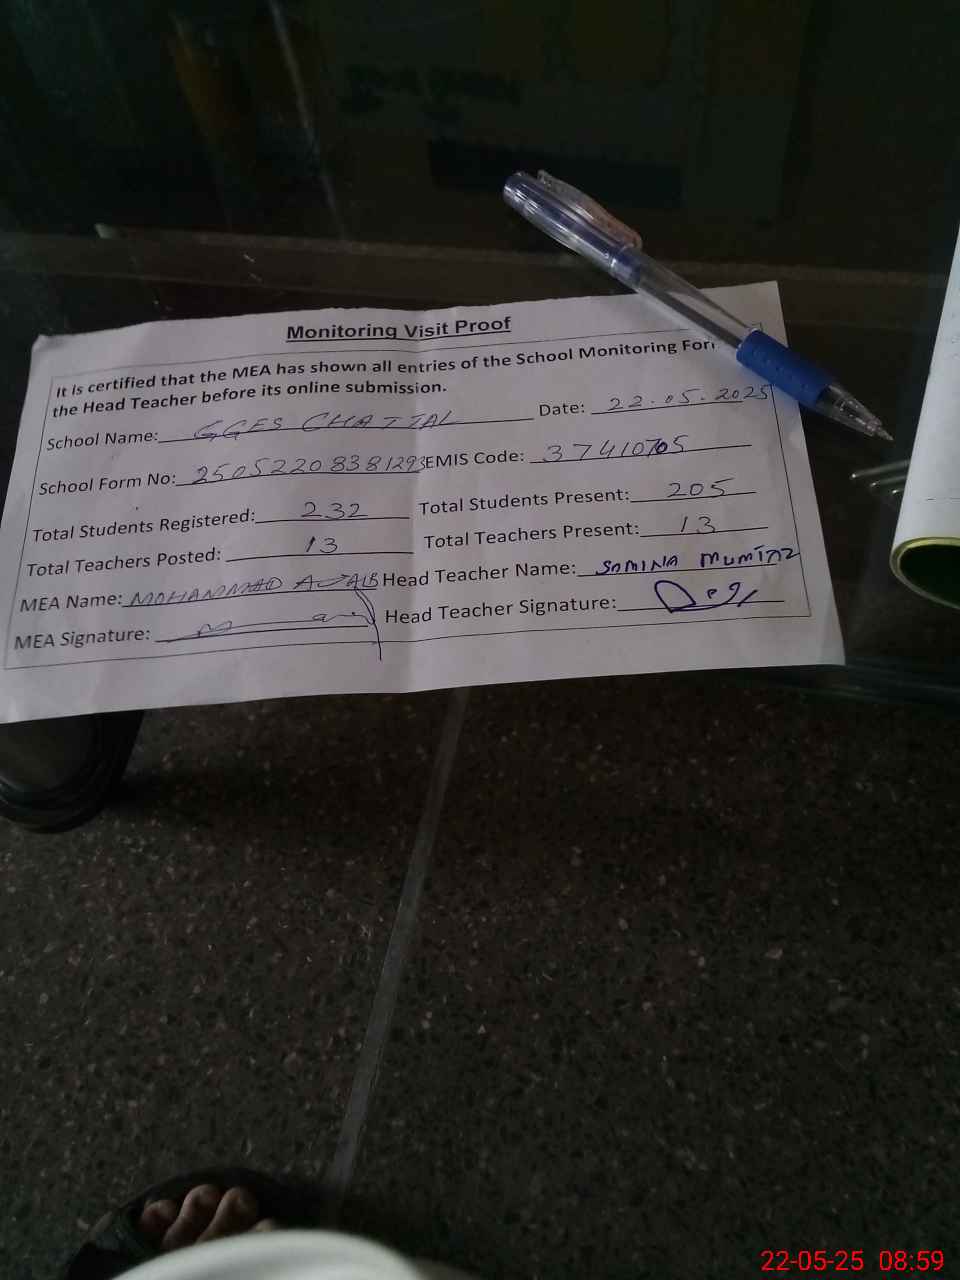 Monitoring Visit Proof
It is certified that the MEA has shown all entries of the School Monitoring For
the Head Teacher before its online submission.
School Name: GGES CHATTAL Date: 22.05.2025
School Form No: 25052208381293 EMIS Code: 37410705
Total Students Registered: 232 Total Students Present: 205
Total Teachers Posted: 13 Total Teachers Present: 13
MEA Name: MOHAMMAD Head Teacher Name: SAMINA MUMTAZ
MEA Signature: Head Teacher Signature:
22-05-25 08:59